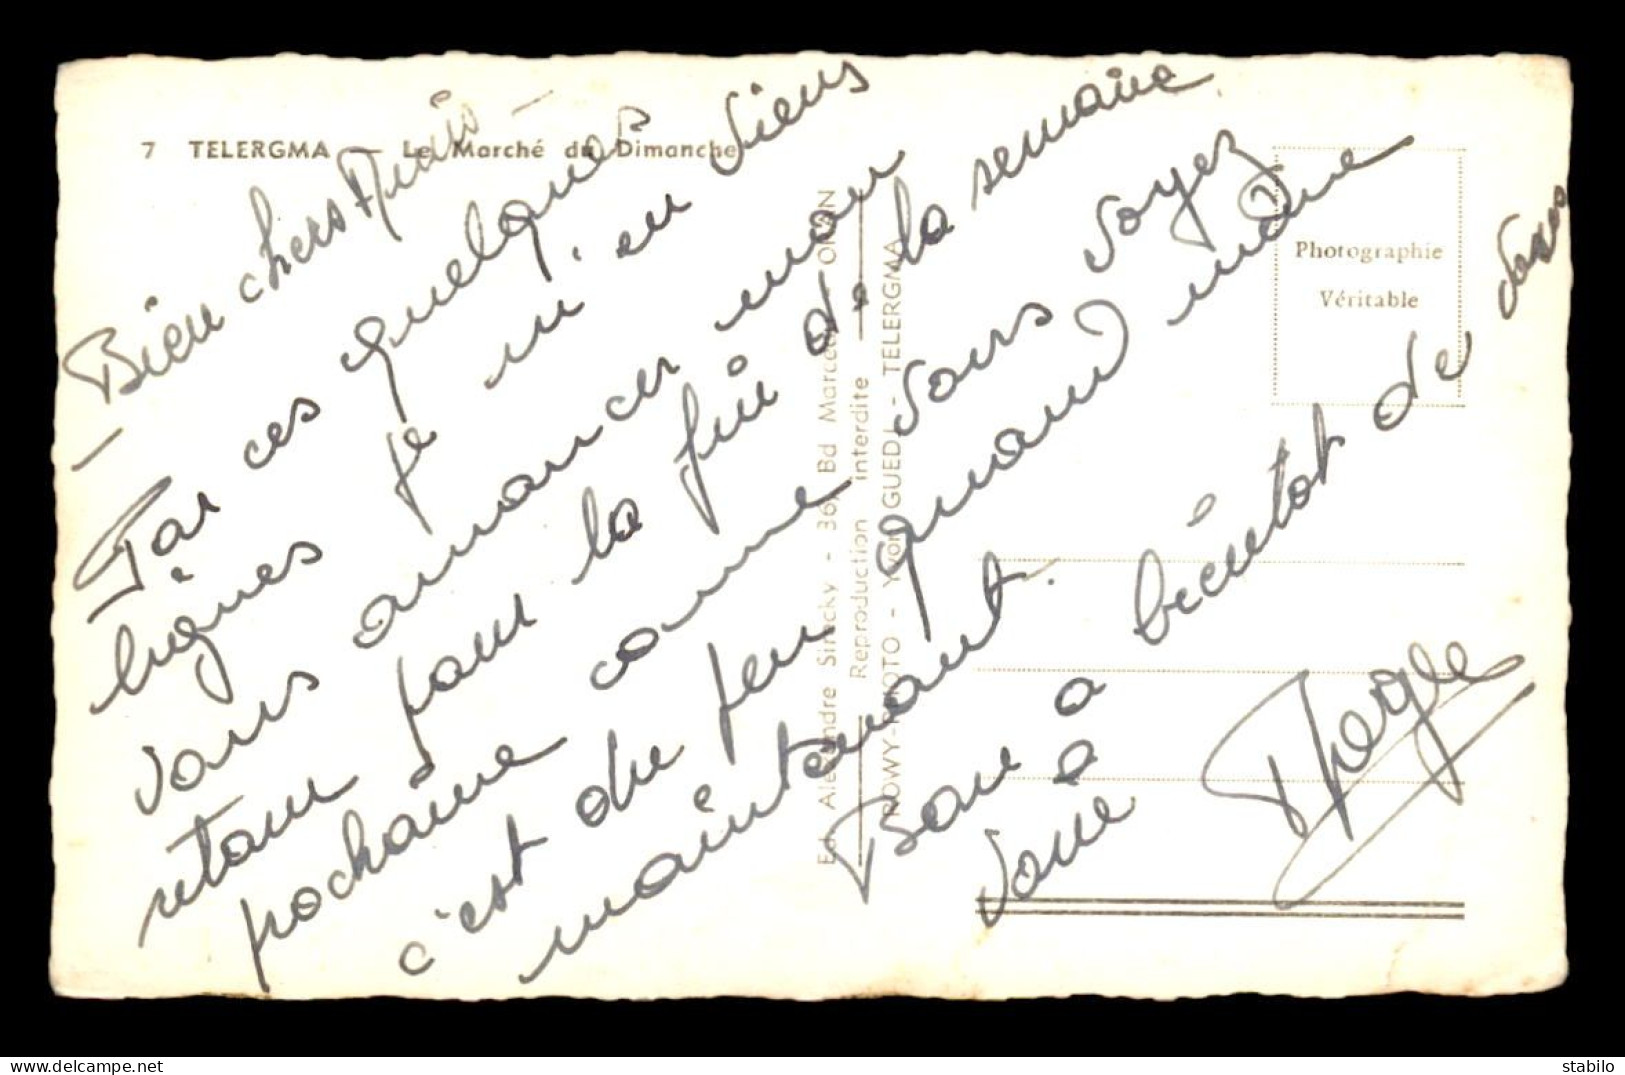 7 TELERGMA — Le Marché du Dimanche
Bien chers Amis —
— Par ces quelques
lignes je m'en viens
vous annoncer mon
retour pour la fin de la semaine
prochaine comme vous voyez
c'est du peu quand même
maintenant.
à bientôt de vous
Ed. Alexandre Sirecky - 36, Bd Marceau ORAN
Reproduction interdite
ROWY-PHOTO - Yvon GUEDJ - TELERGMA
Photographie
Véritable